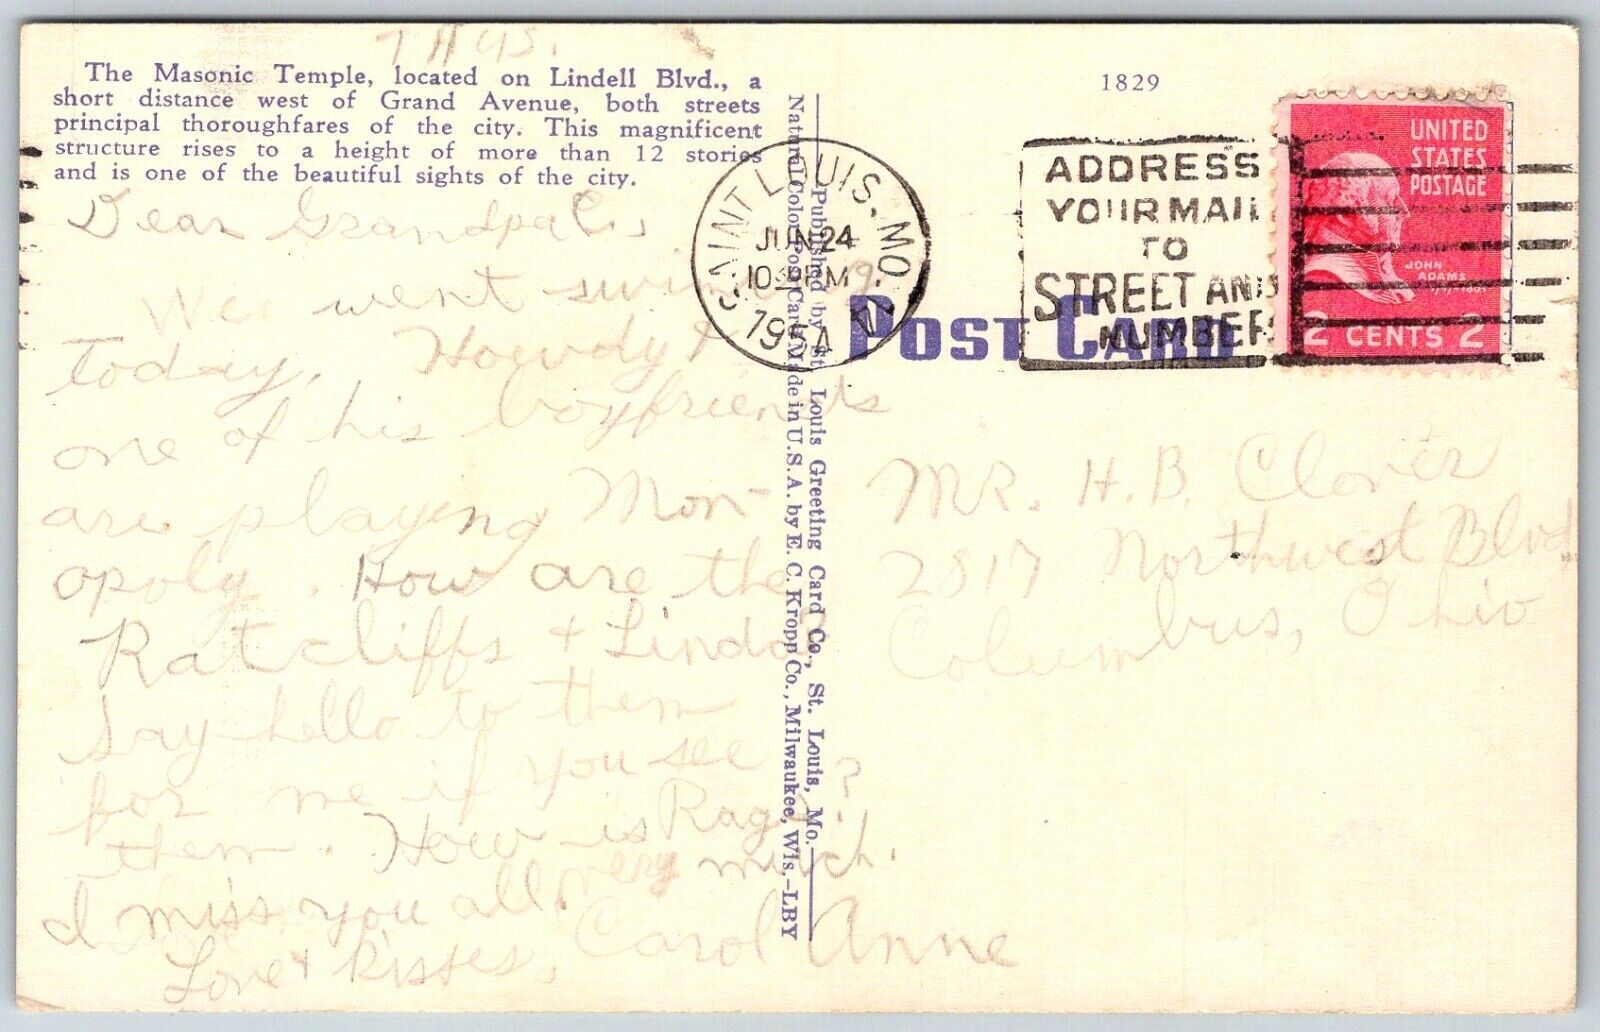 The Masonic Temple, located on Lindell Blvd., a
short distance west of Grand Avenue, both streets
principal thoroughfares of the city. This magnificent
structure rises to a height of more than 12 stories
and is one of the beautiful sights of the city.
Dear Grandpa
We went swimming
today. Howdy &
one of his boyfriends
are playing Mon-
opoly. How are the
Ratcliffs + Linda?
Say hello to them
for me if you see
them. How is Rags?
I miss you all very much.
Love + kisses,
Carol Anne
Published by St. Louis Greeting Card Co., St. Louis, Mo.
Natural Color Post Card Made in U.S.A. by E. C. Kropp Co., Milwaukee, Wis.-LBY
1829
SAINT LOUIS, MO.
JUN 24
PM
ADDRESS
YOUR MAIL
TO
STREET AND
NUMBER
UNITED
STATES
POSTAGE
JOHN
ADAMS
2 CENTS 2
POST CARD
MR. H. B. Clover
2817 Northwest Blvd
Columbus, Ohio